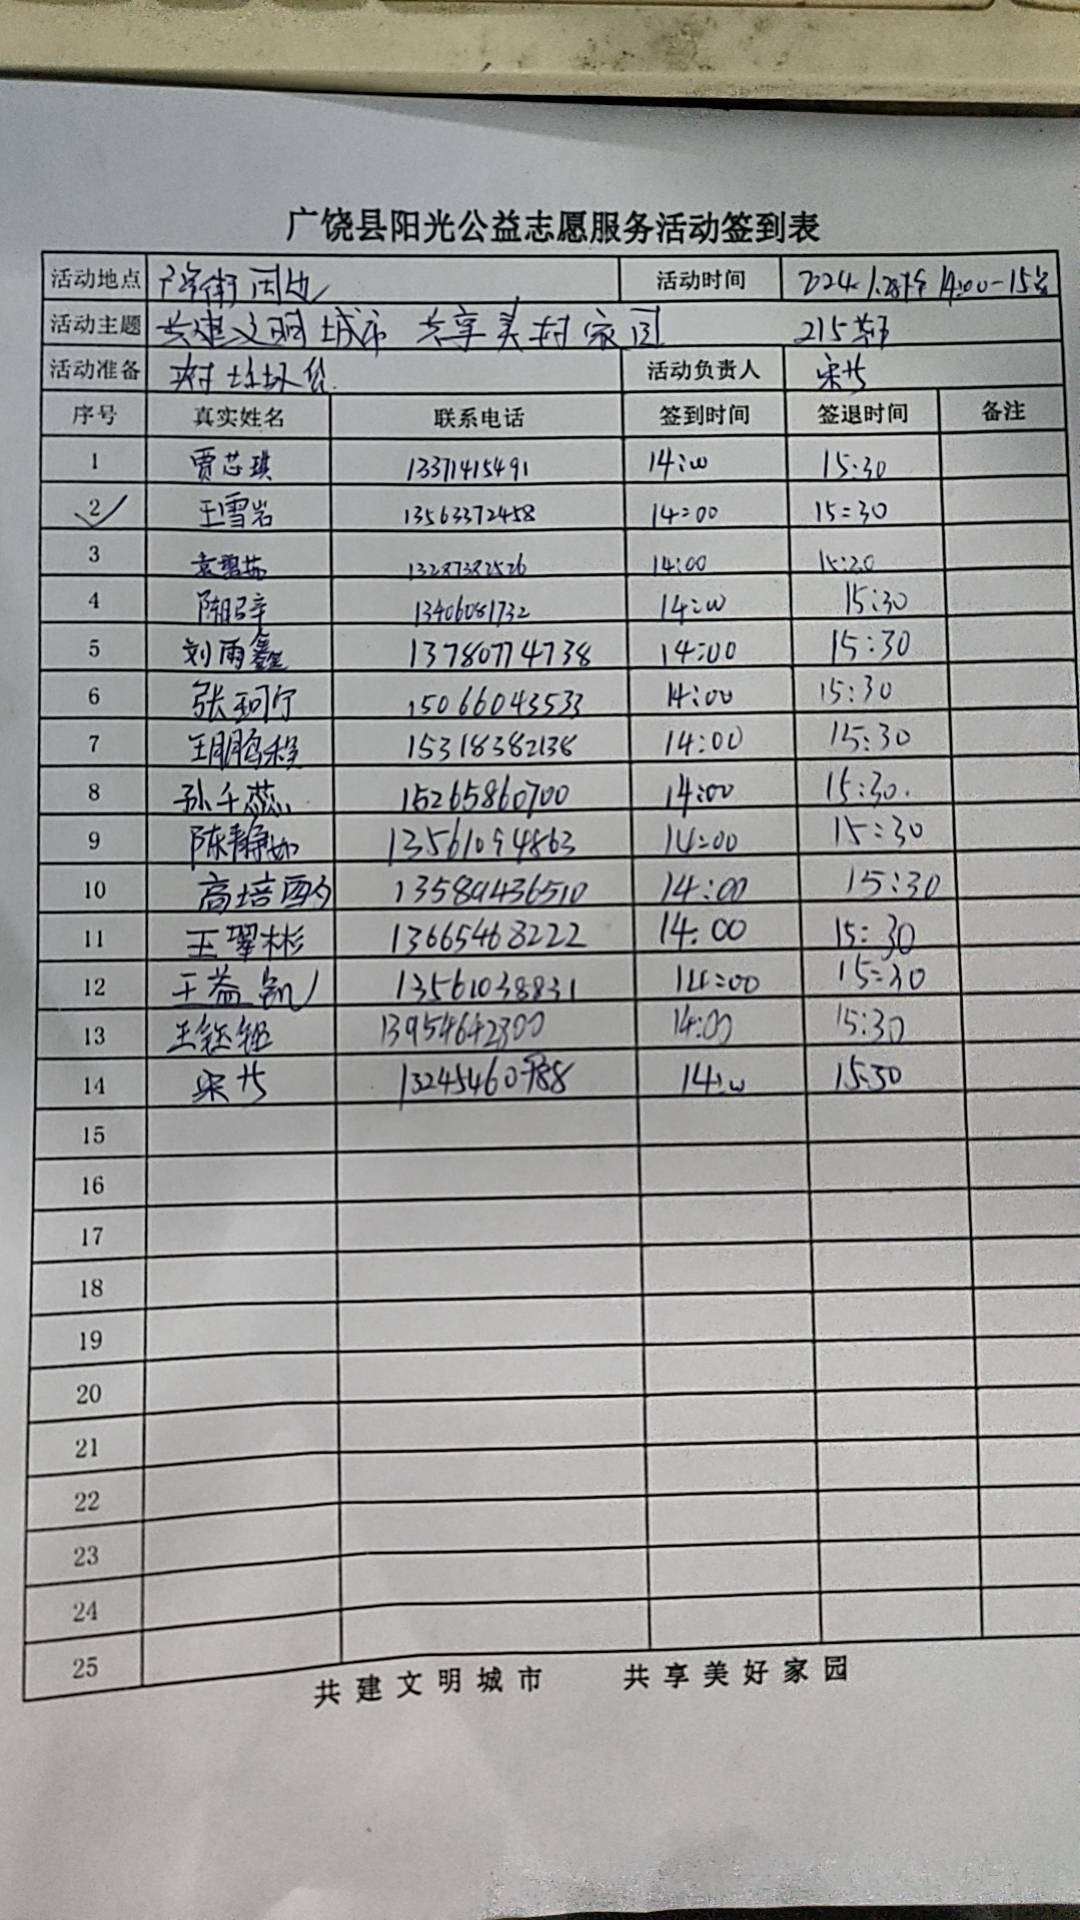 广饶县阳光公益志愿服务活动签到表
活动地点 街周边 活动时间 2024.1.28 14:00-15:30
活动主题 共建文明城市 共享美好家园 215
活动准备 垃圾 活动负责人 宋
序号 真实姓名 联系电话 签到时间 签退时间 备注
1 贾芯琪 13371415491 14:00 15:30
2 王雪岩 13563372458 14:00 15:30
3 袁碧茹 13287382526 14:00 15:20
4 陈 13406081732 14:00 15:30
5 刘雨鑫 13780774738 14:00 15:30
6 张珂宁 15066043533 14:00 15:30
7 王鹏程 15318382138 14:00 15:30
8 孙千蕊 15265860700 14:00 15:30.
9 陈静如 13561094863 14:00 15:30
10 高培 13589436510 14:00 15:30
11 王翠彬 13665468222 14:00 15:30
12 王益凯 13561038831 14:00 15:30
13 王钰铠 13954642300 14:00 15:30
14 宋 13245460788 14:00 15:30
15
16
17
18
19
20
21
22
23
24
25
共建文明城市 共享美好家园